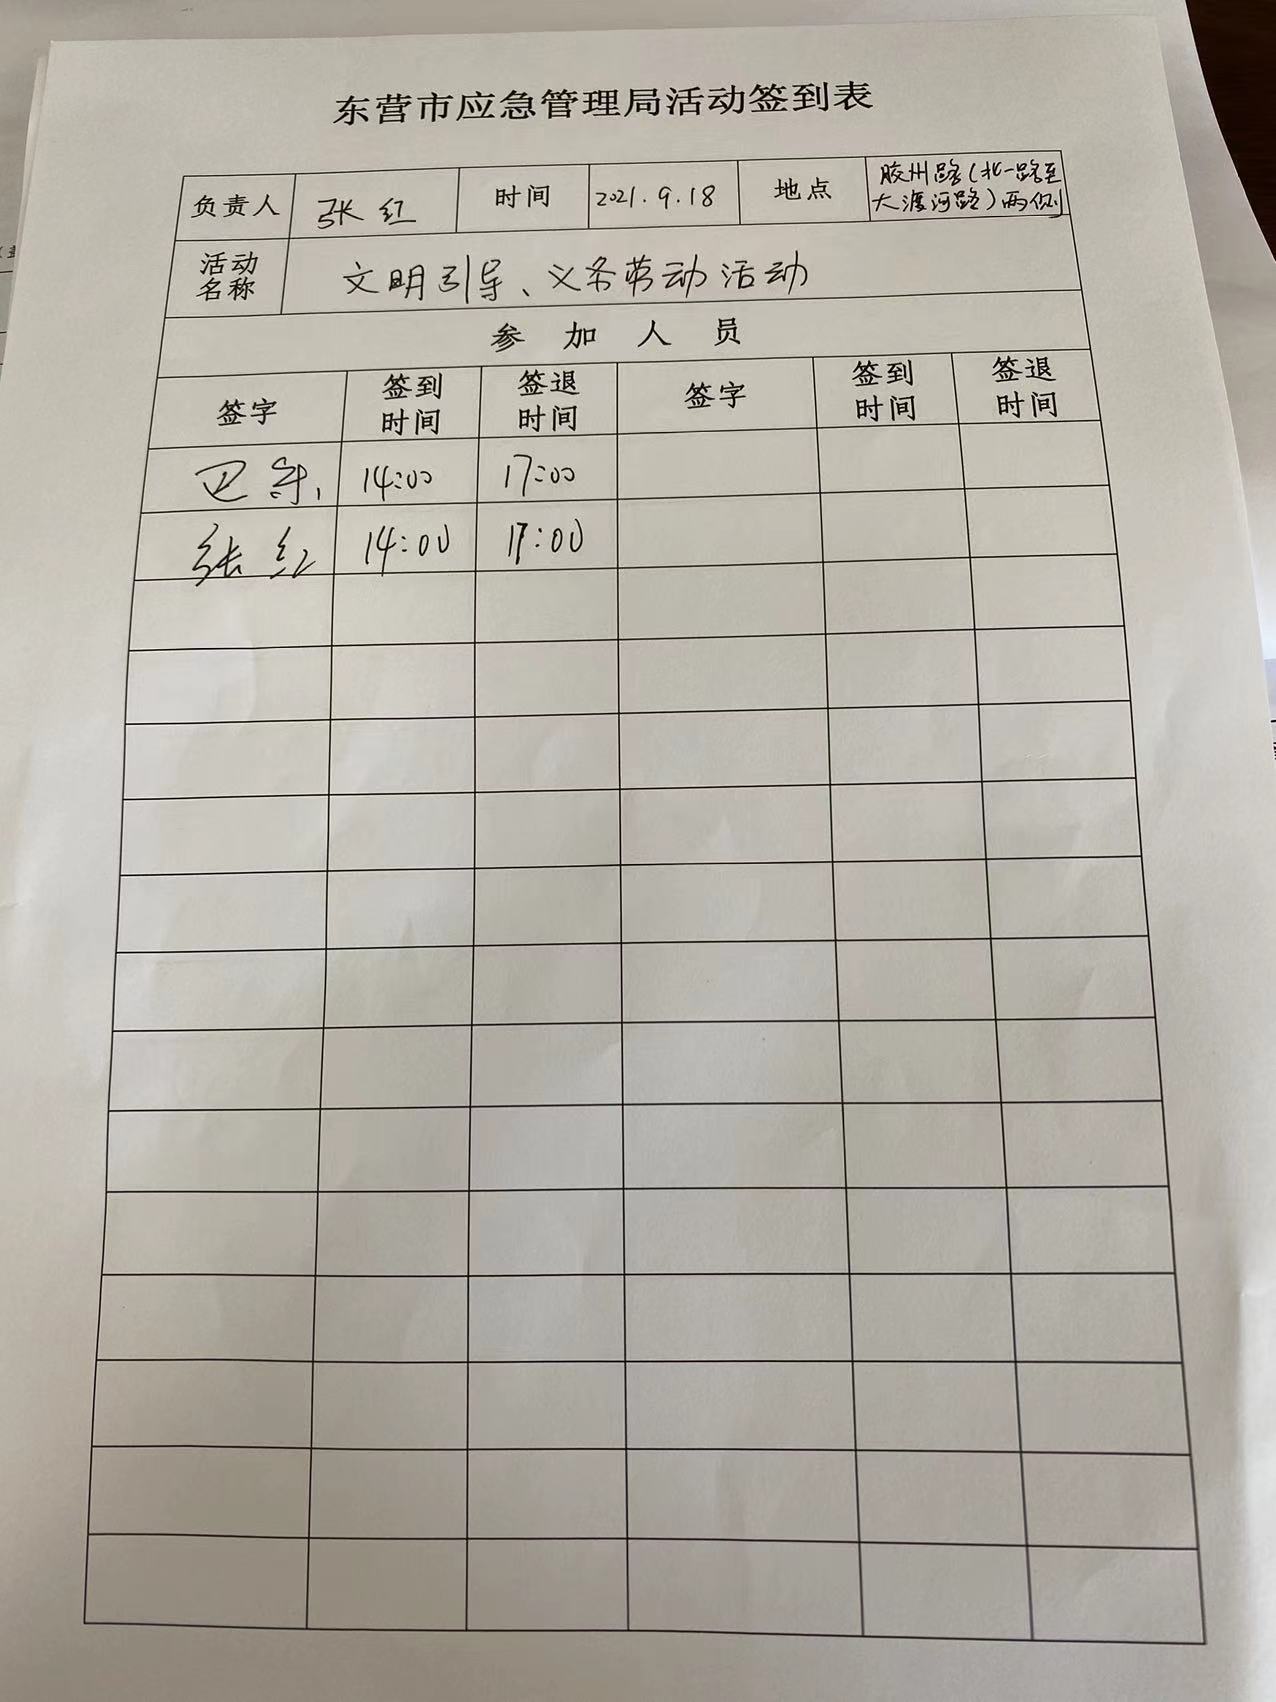 东营市应急管理局活动签到表
负责人 张红 时间 2021.9.18 地点 胶州路(北一路至
大渡河路)两侧
活动
名称 文明引导、义务劳动活动
参加人员
签字 签到
时间 签退
时间 签字 签到
时间 签退
时间
14:00 17:00
张红 14:00 17:00